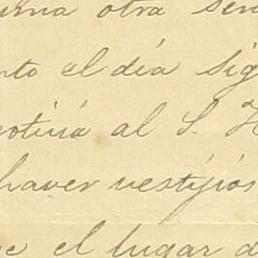 una otra sen
nto el dia sig
noticia al S. H
haver vestijios
e el lugar d